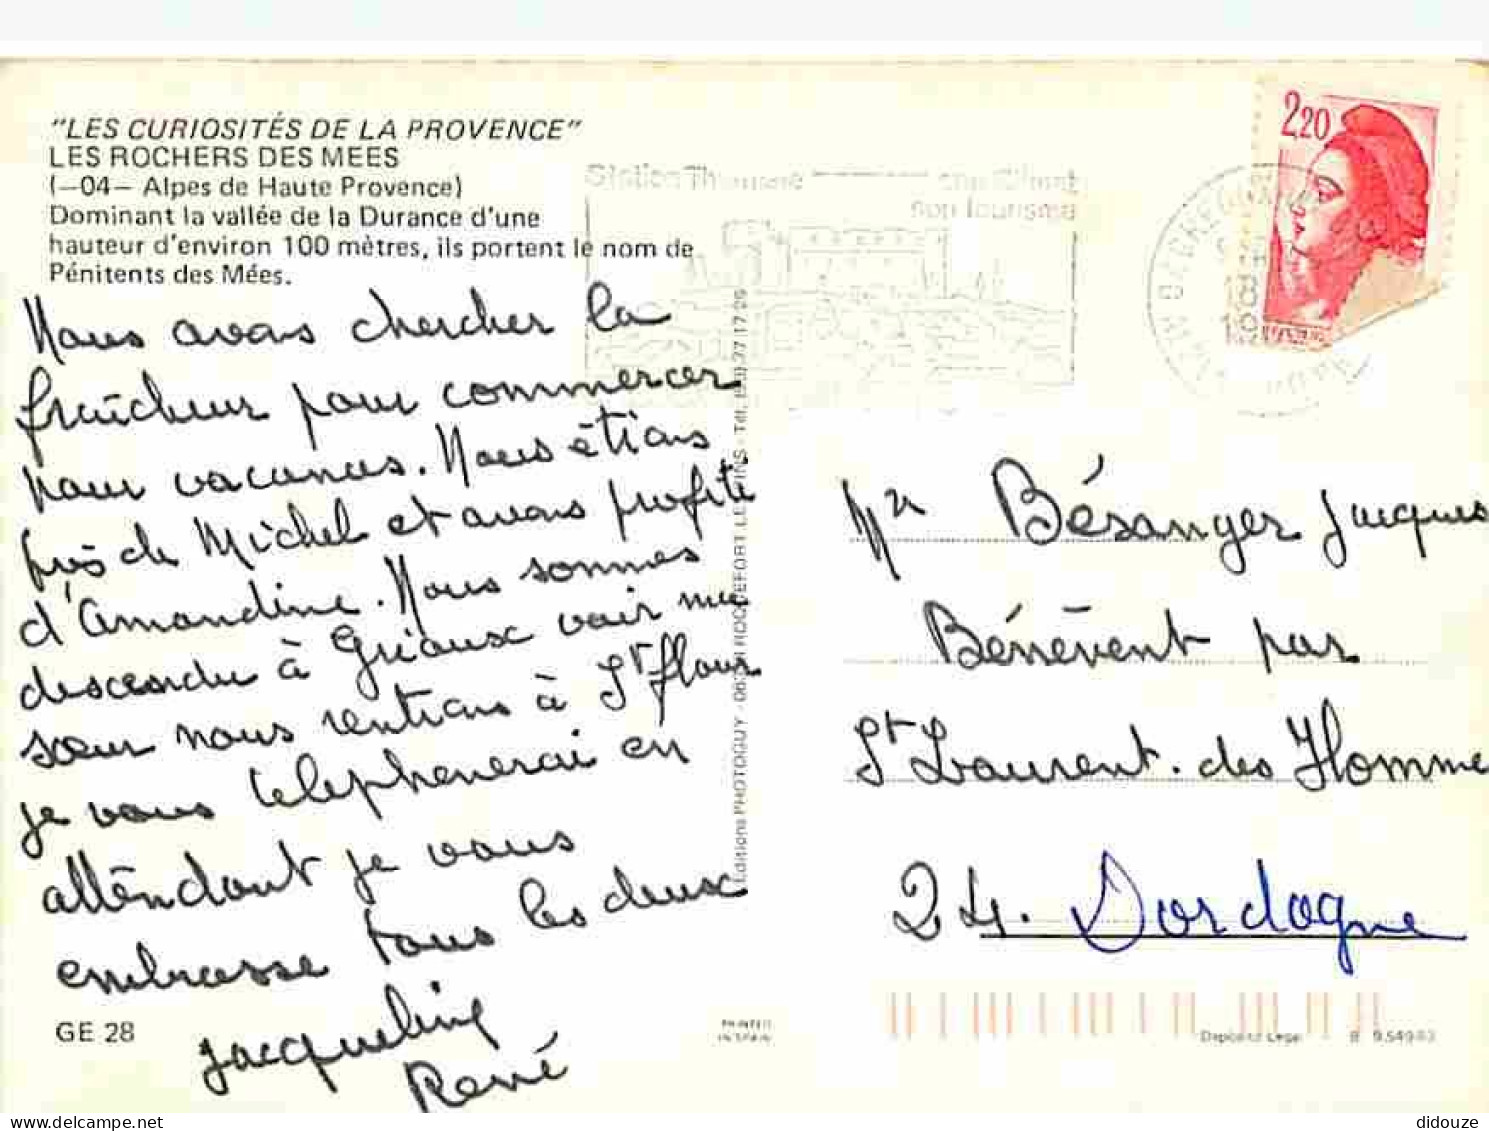 "LES CURIOSITÉS DE LA PROVENCE"
LES ROCHERS DES MEES
(—04— Alpes de Haute Provence)
Dominant la vallée de la Durance d'une
hauteur d'environ 100 mètres, ils portent le nom de
Pénitents des Mées.
Nous avons chercher la
fraîcheur pour commencer
pour vacances. Nous étions
près de Michel et avons profité
d'Amandine. Nous sommes
descendu à Gréoux voir ma
sœur nous rentrons à St flour
je vous telephonerai en
attendant je vous
embrasse tous les deux
Jacqueline
René
GE 28
Editions PHOTOGUY - ROQUEFORT LES PINS - Tél. 77 17
PRINTED
IN SPAIN
Station Thermale
son tourisme
2,20
Mr Bésanger Jacques
Bénévent par
St Laurent. des Homme
24. Dordogne
Deposito Legal B 9.549-83
didouze